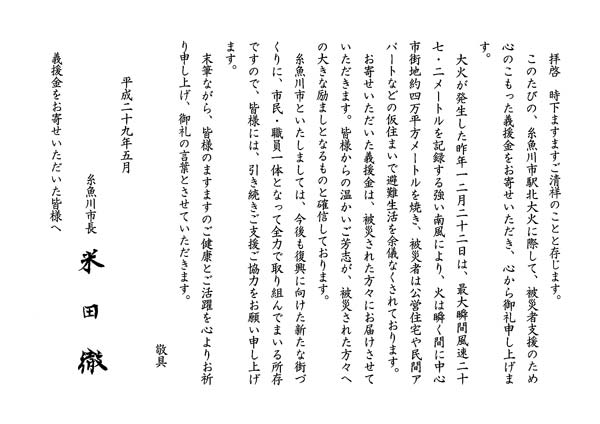 拝啓　時下ますますご清祥のことと存じます。
このたびの、糸魚川市駅北大火に際して、被災者支援のため
心のこもった義援金をお寄せいただき、心から御礼申し上げま
す。
大火が発生した昨年一二月二十二日は、最大瞬間風速二十
七・二メートルを記録する強い南風により、火は瞬く間に中心
市街地約四万平方メートルを焼き、被災者は公営住宅や民間ア
パートなどの仮住まいで避難生活を余儀なくされております。
お寄せいただいた義援金は、被災された方々にお届けさせて
いただきます。皆様からの温かいご芳志が、被災された方々へ
の大きな励ましとなるものと確信しております。
糸魚川市といたしましては、今後も復興に向けた新たな街づ
くりに、市民・職員一体となって全力で取り組んでまいる所存
ですので、皆様には、引き続きご支援ご協力をお願い申し上げ
ます。
末筆ながら、皆様のますますのご健康とご活躍を心よりお祈
り申し上げ、御礼の言葉とさせていただきます。
敬具
平成二十九年五月
糸魚川市長　米田徹
義援金をお寄せいただいた皆様へ